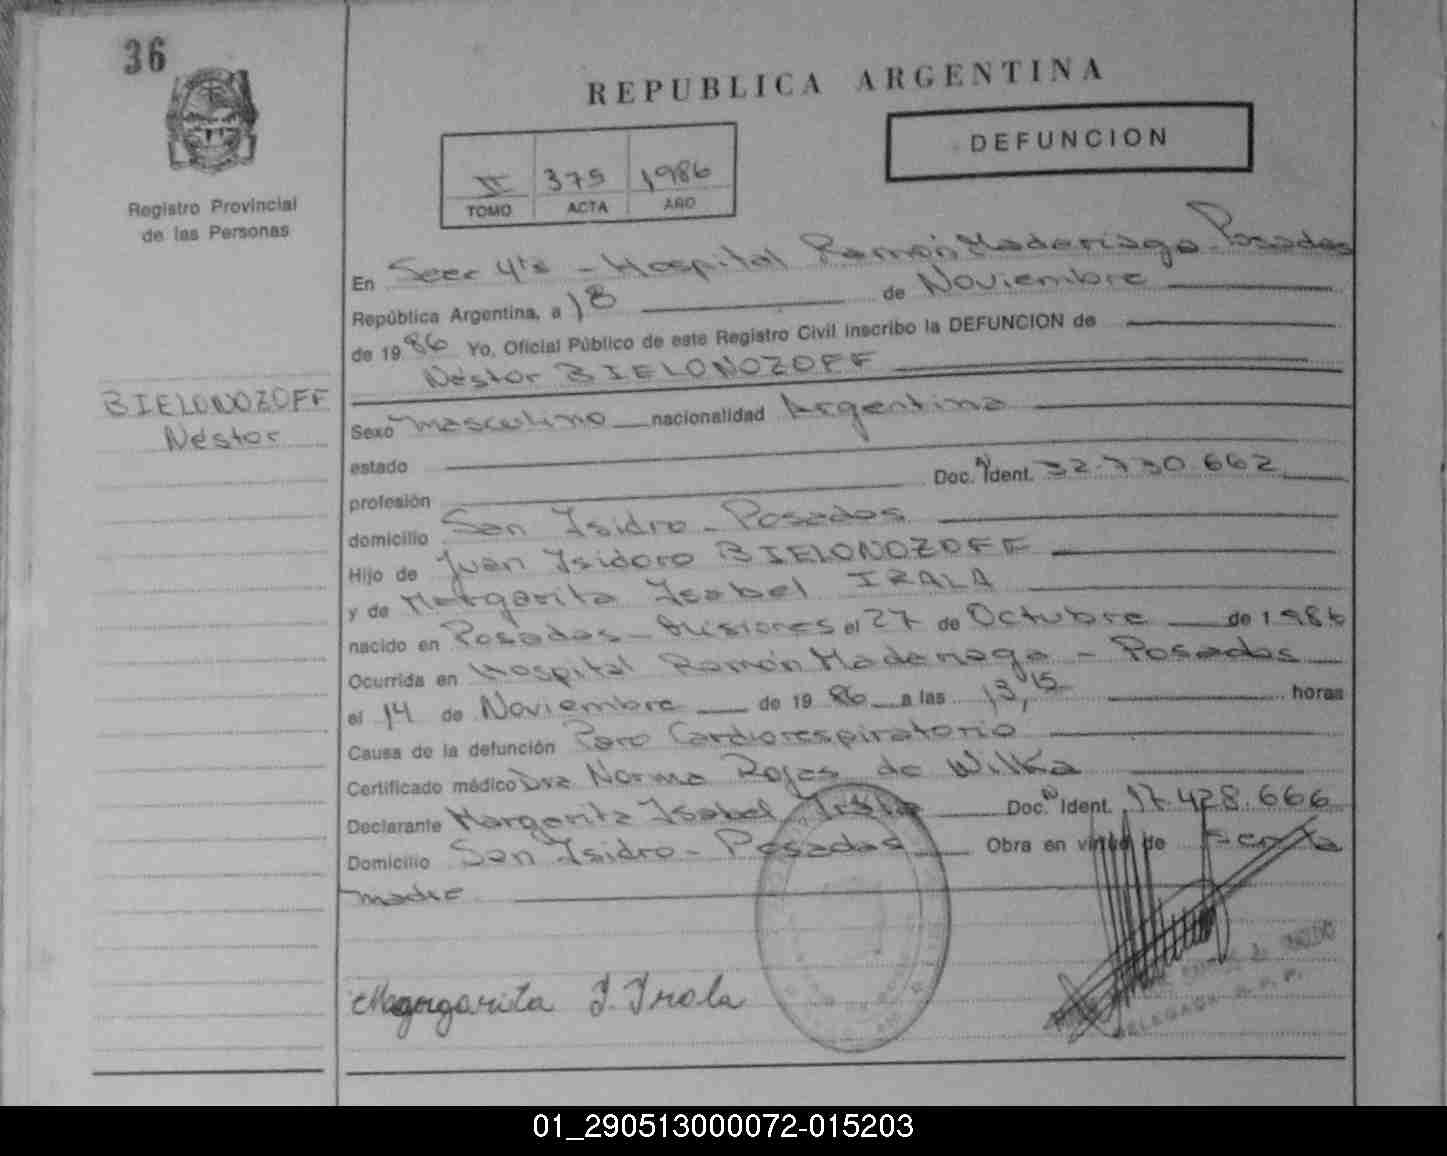 36
REPUBLICA ARGENTINA
DEFUNCION
II 375 1986
TOMO ACTA AÑO
Registro Provincial
de las Personas
En Secc 4ta - Hospital Ramón Madariaga - Posadas
República Argentina, a 18 de Noviembre
de 1986 Yo, Oficial Público de este Registro Civil inscribo la DEFUNCION de
Néstor BIELONOZOFF
BIELONOZOFF
Néstor
Sexo masculino nacionalidad Argentina
estado
profesión Doc. N° Ident. 32.730.662
domicilio San Isidro - Posadas
Hijo de Juan Isidoro BIELONOZOFF
y de Margarita Isabel IRALA
nacido en Posadas - Misiones el 27 de Octubre de 1986
Ocurrida en Hospital Ramón Madariaga - Posadas
el 14 de Noviembre de 1986 a las 13,15 horas
Causa de la defunción Paro Cardiorespiratorio
Certificado médico Dra Norma Rojas de Wilka
Declarante Margarita Isabel Irala Doc. N° Ident. 17.428.666
Domicilio San Isidro - Posadas Obra en virtud de ser la
madre
Margarita I. Irala
DELEGADA R. P. P.
01_290513000072-015203